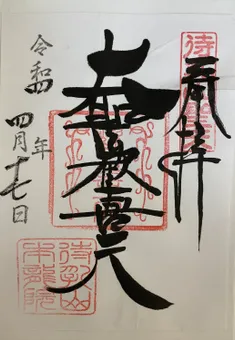 奉拝
大聖歓喜天
令和四年
四月十七日
待乳山
本龍院